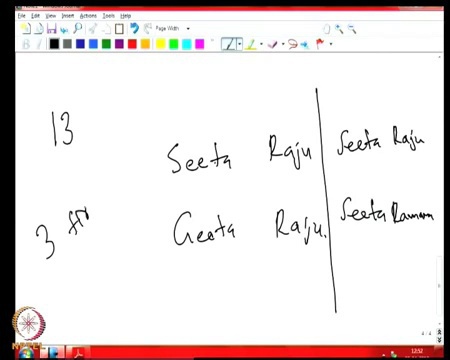 File Edit View Insert Actions Tools Help
Page Width
13
Seeta Raju Seeta Raju
3
Geeta Raju. Seeta Ramana
NPTEL
12:52